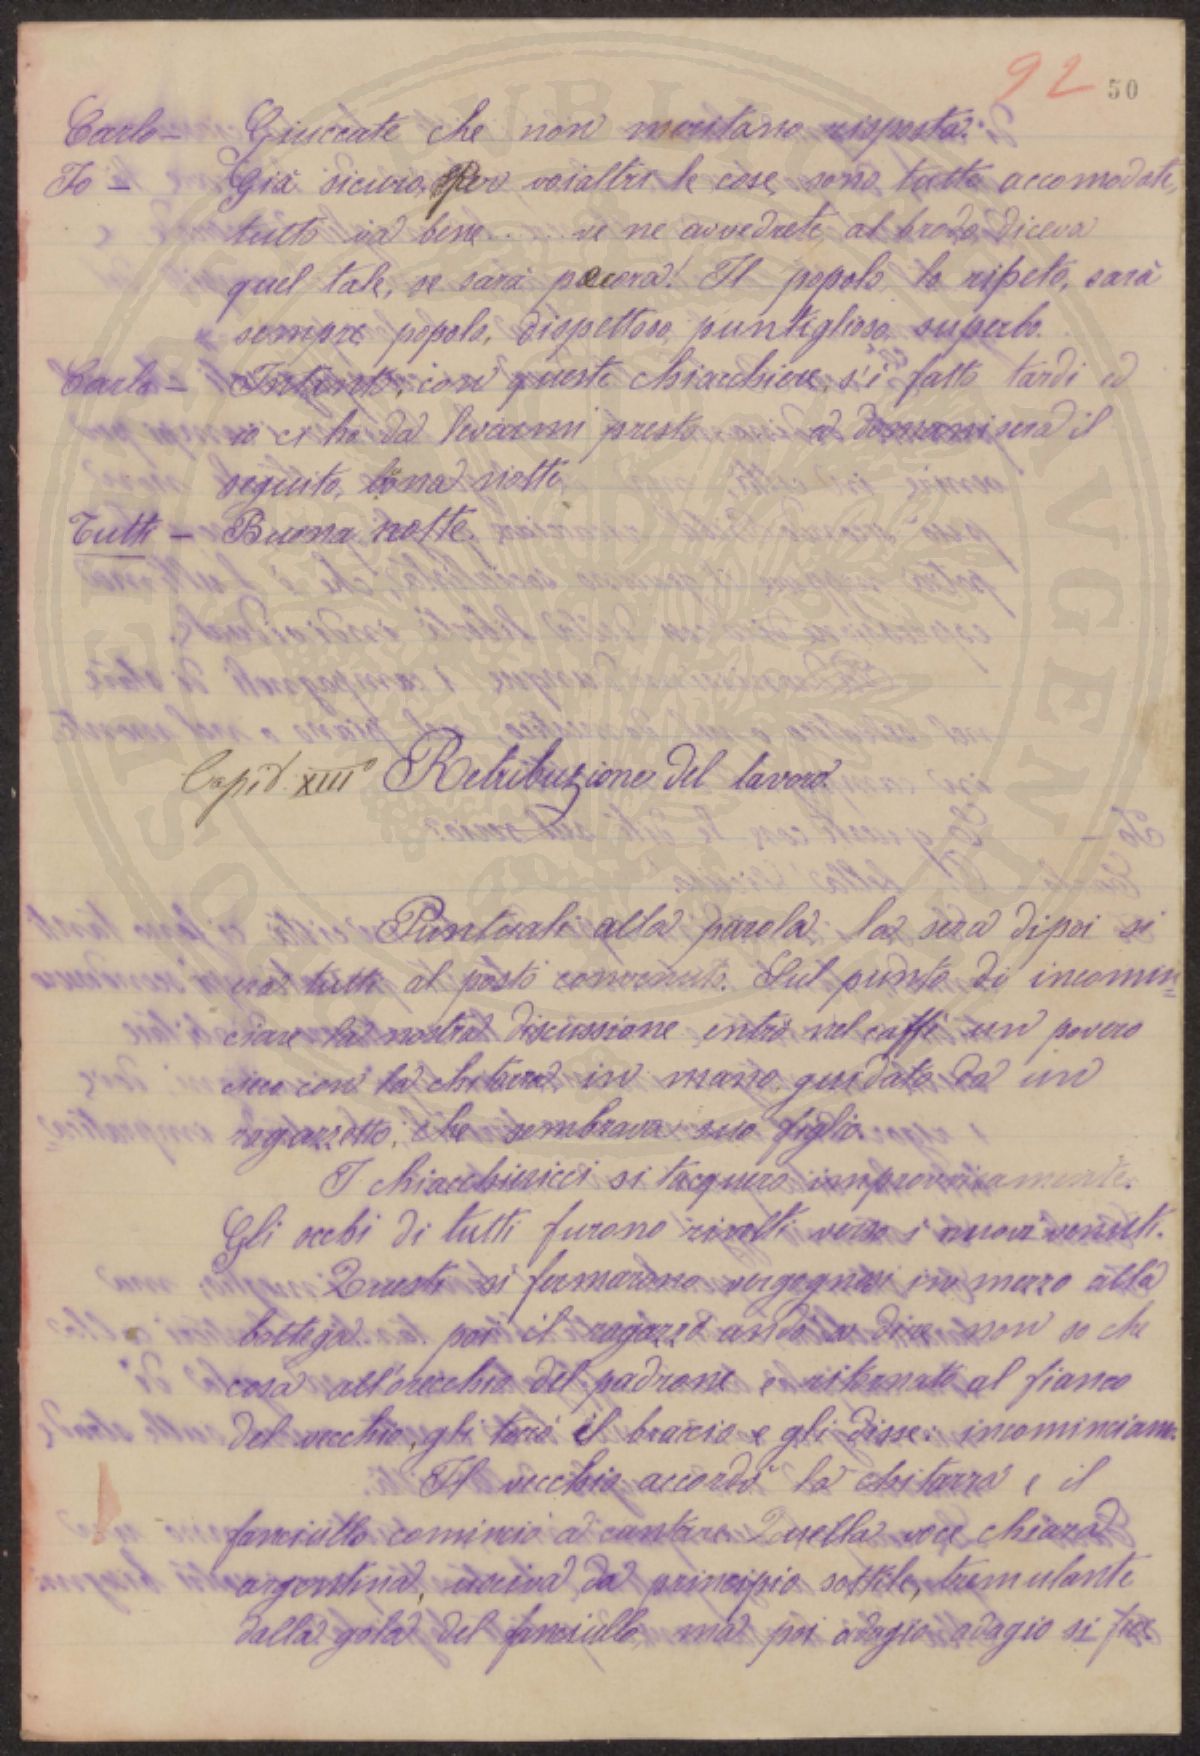 92 50
Carlo - Giuccate che non meritano risposta.
Io - Già sicuro. Per voialtri le cose sono tutte accomodate,
tutto va bene..... ve ne avvedrete, al brodo, diceva
quel tale, se sarà pecora! Il popolo, lo ripeto, sarà
sempre popolo, dispettoso, puntiglioso, superbo.
Carlo - Intanto, con queste chiacchiere, s'è fatto tardi ed
io ci ho da levarmi presto a domani sera il
seguito, bona notte
Tutti - Buona notte.
Capid. XIII° Retribuzione del lavoro
Puntuali alla parola, la sera dipoi si
era tutti al posto convenuto. Sul punto di incomin=
ciare la nostra discussione entrò nel caffè un povero
cieco con la chitarra in mano, guidato da un
ragazzetto, che sembrava suo figlio.
I chiacchiericci si tacquero improvvisamente.
Gli occhi di tutti furono rivolti verso i nuovi venuti.
Questi si fermarono vergognosi in mezzo alla
bottega poi il ragazzo andò a dire non so che
cosa all'orecchio del padrone e ritornato al fianco
del vecchio, gli toccò il braccio e gli disse: incominciam=
Il vecchio accordò la chitarra e il
fanciullo cominciò a cantare. Quella voce chiara
argentina, usciva da principio sottile, tremulante
dalla gola del fanciullo ma poi adagio adagio si fece